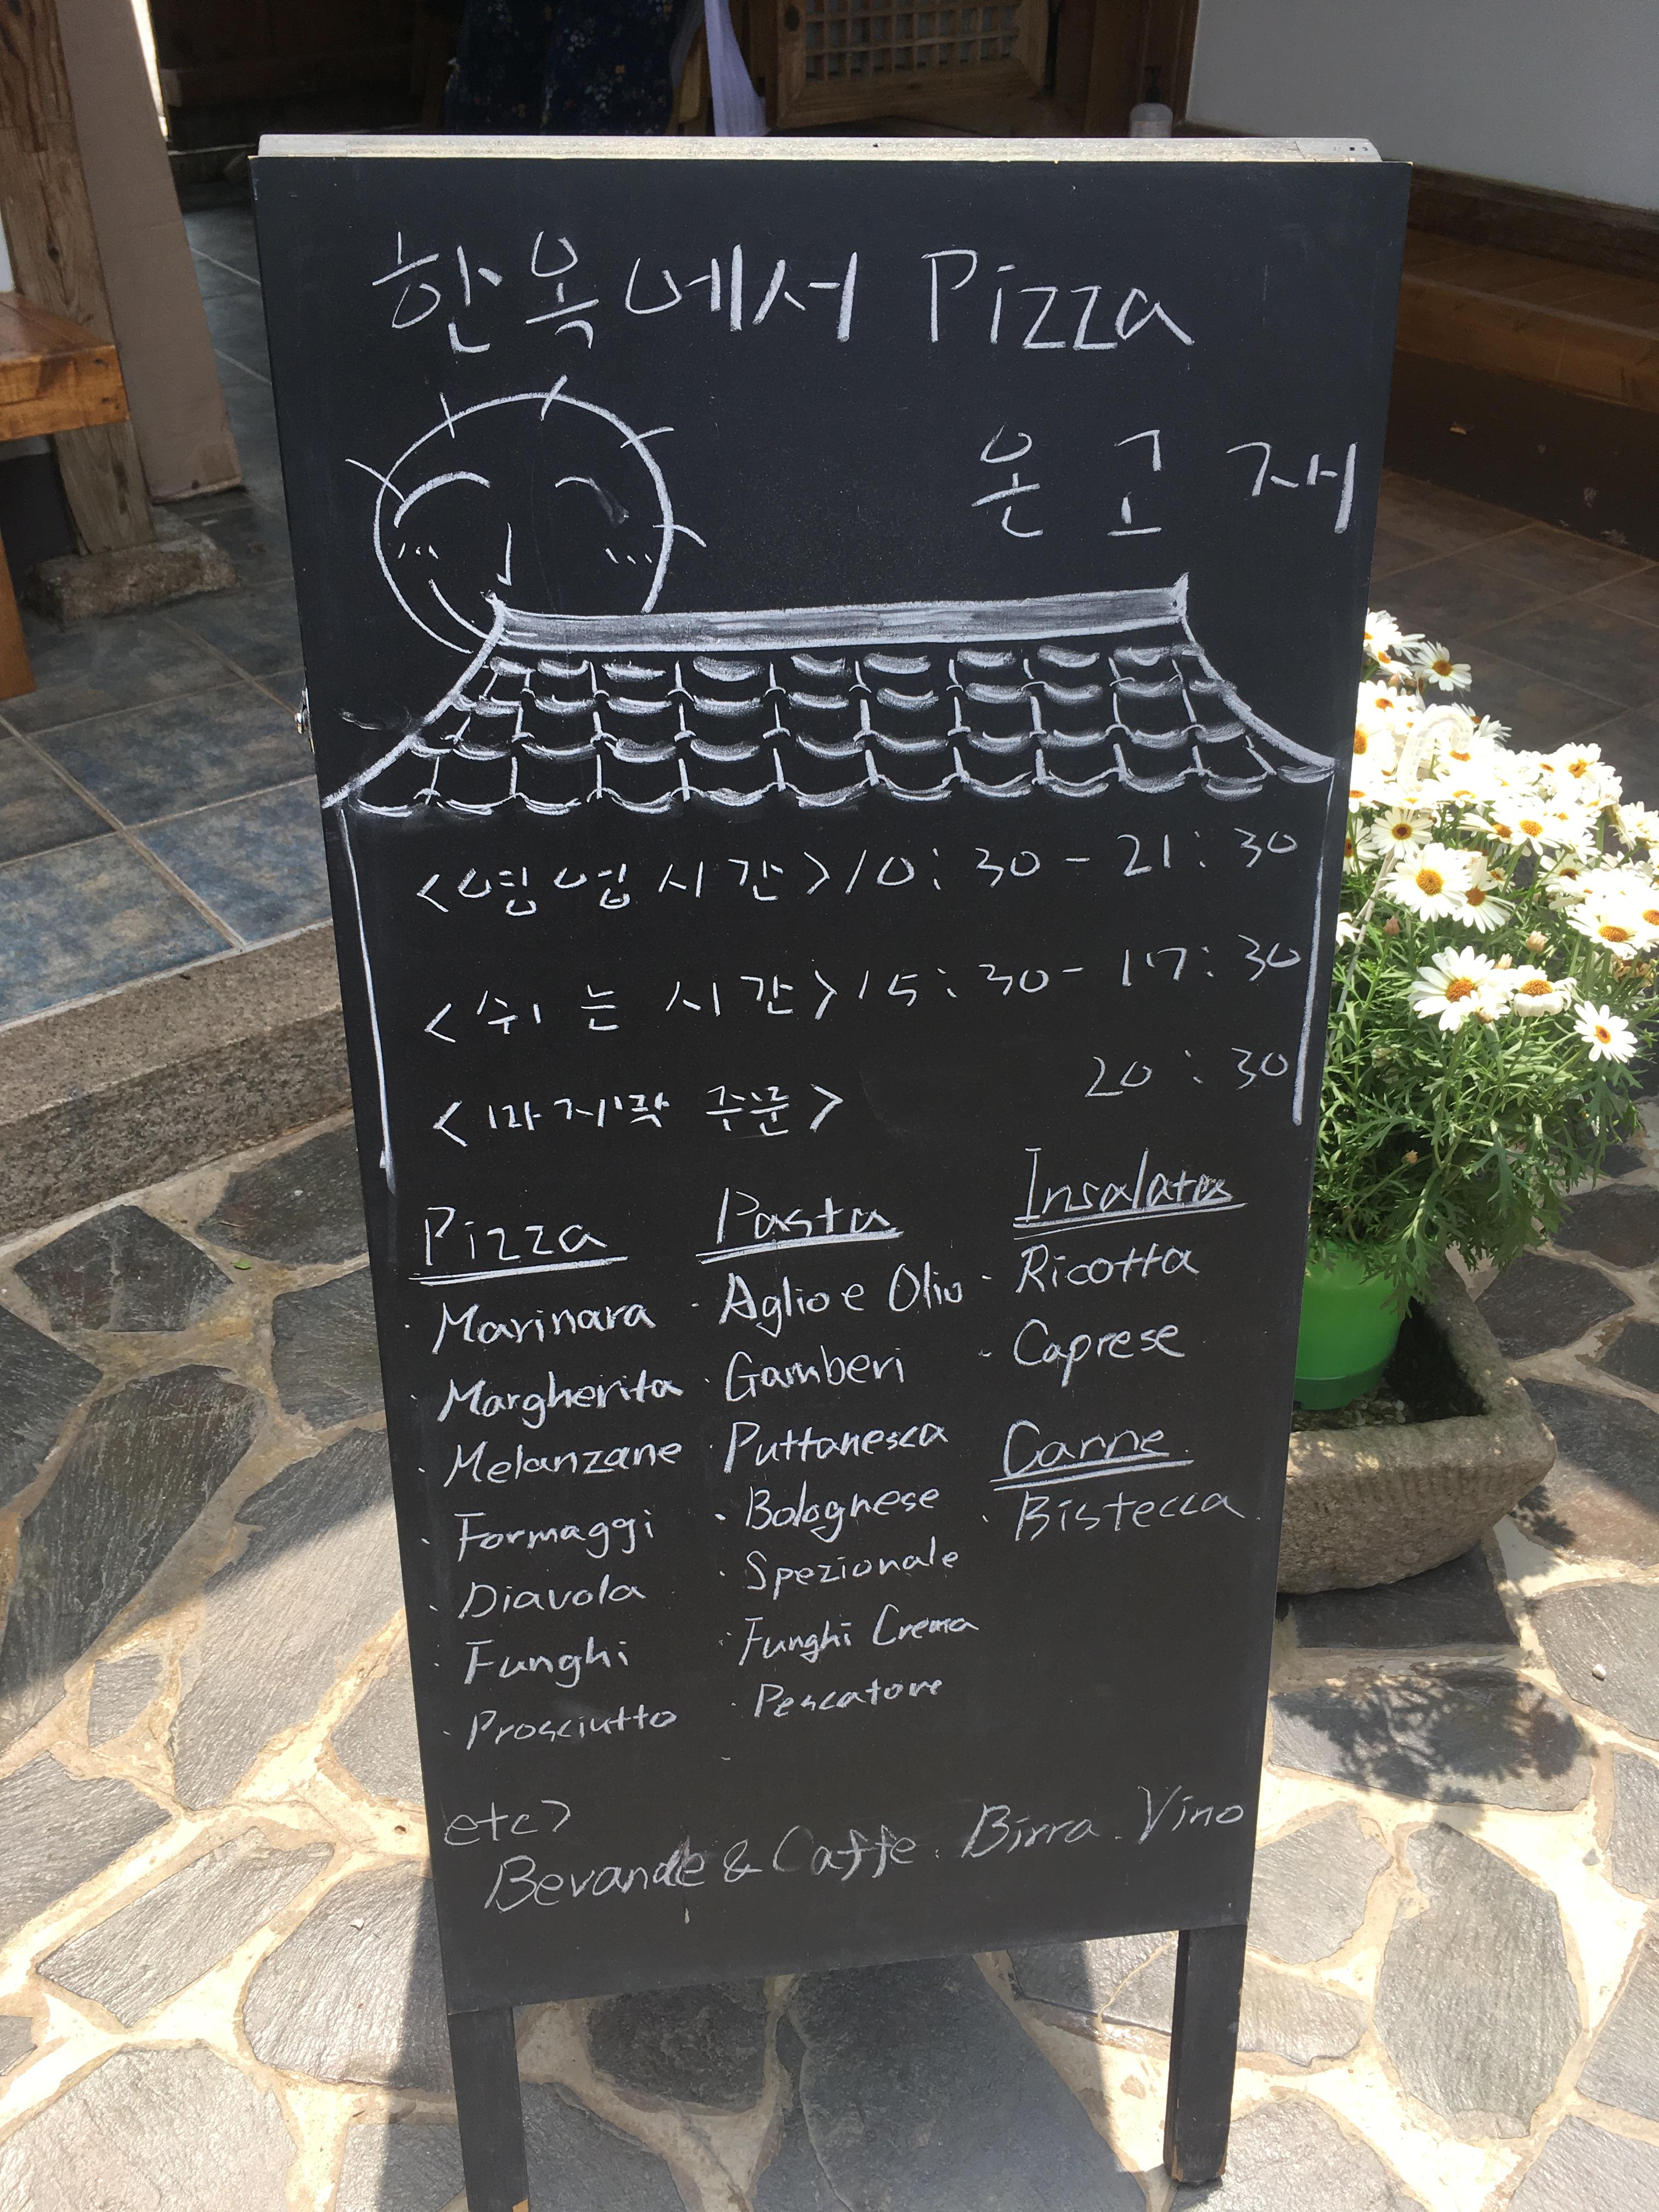 한옥에서 Pizza
온고재
<영업시간> 10:30 - 21:30
<쉬는 시간> 15:30 - 17:30
<마지막 주문> 20:30
Pizza
· Marinara
· Margherita
· Melanzane
· Formaggi
· Diavola
· Funghi
· Prosciutto
Pasta
· Aglio e Olio
· Gamberi
· Puttanesca
· Bolognese
· Spezionale
· Funghi Crema
· Pescatore
Insalata
· Ricotta
· Caprese
Carne
· Bistecca
etc>
Bevande & Caffe. Birra. Vino